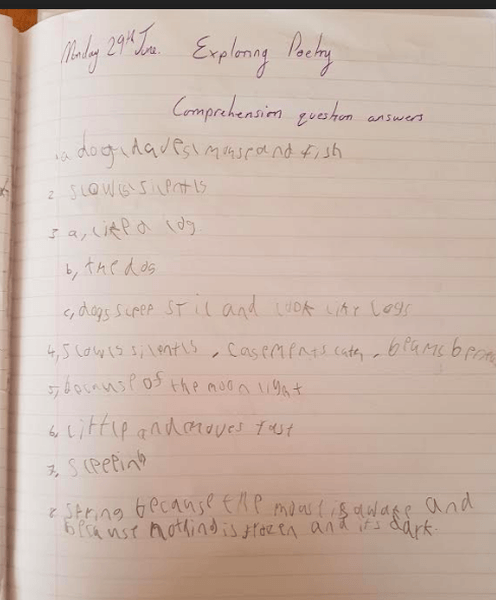 Monday 29th June. Exploring Poetry
Comprehension question answers
1. a dog, daves, mouse and fish
2. slowls silentls
3 a, like a log
b, the dog
c, dogs sleep still and look like logs
4, slowls silentls, casements catch, beams beneath
5, because of the moon light
6, little and moves fast
7, sleeping
8 string because the mouse is awake and
because nothing is frozen and its dark.